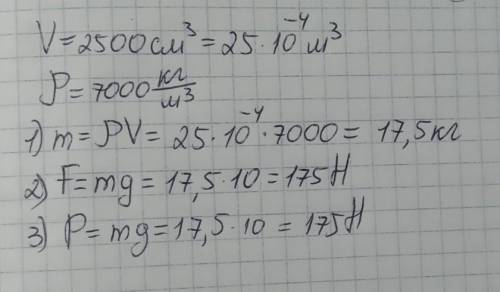 V=2500см³=25·10⁻⁴м³
ρ=7000 кг/м³
1) m=ρV=25·10⁻⁴·7000=17,5кг
2) F=mg=17,5·10=175Н
3) P=mg=17,5·10=175Н